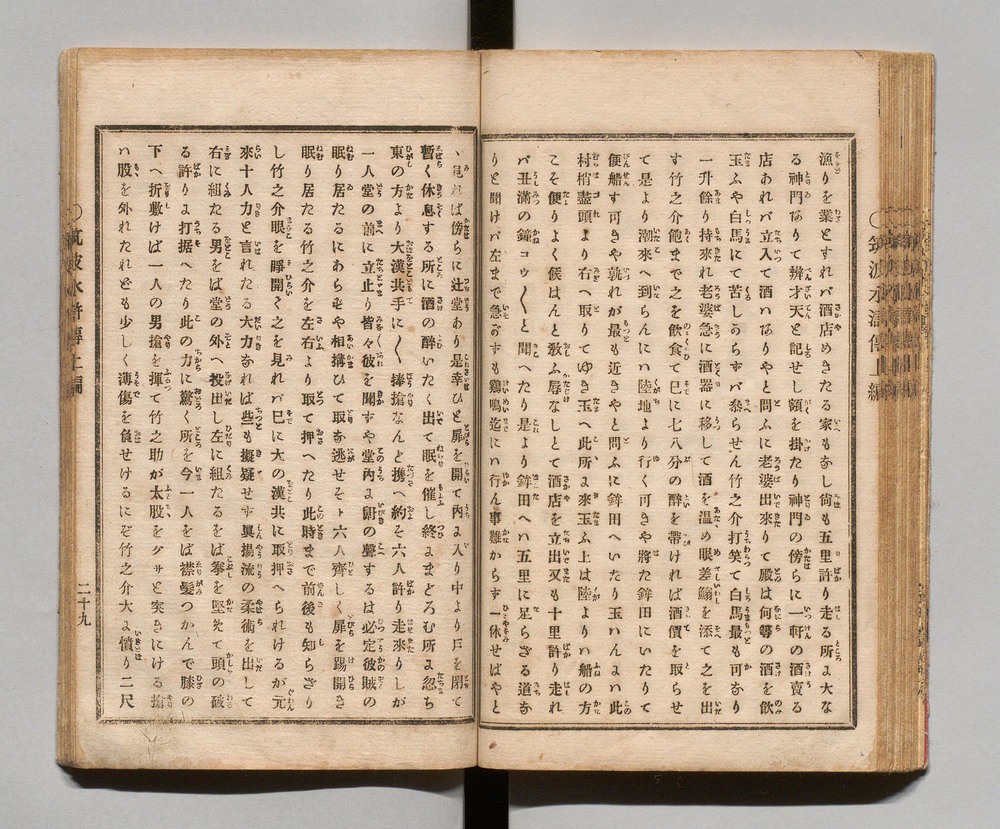 漁りを業とすれバ酒店めきたる家もなし尙も五里許り走る所ま大な
る神門ありて辨才天と記せし額を掛けたり神門の傍らに一軒の酒賣る
店あれバ立入て酒ハありやと問ふに老婆出來りて殿は何等の酒を飮
玉ふや白馬にて苦しうらずバ參らせん竹之介打笑て白馬最も可なり
一升餘り持來れ老婆急に酒器に移して酒を温め眼差鰯を添て之を出
す竹之介飽まで之を飮食て已に七八分の醉を帶ければ酒價を取らせ
て是より潮來へ到らんにハ陸地より行く可きや將た鉾田にいたりて
便船す可きや孰れが最も近きやと問ふに鉾田へいたり玉ハんまハ此
村梢盡頭より右へ取りてゆき玉へ此所ま來玉ふ上は陸よりハ船の方
こそ便りよく候はんと敎ふ辱なしとて酒店を立出又も十里許り走れ
バ丑滿の鐘コウ〱と聞へたり是より鉾田へハ五里に足らざる道な
りと聞けバ左まで急がずも鷄鳴迄にハ行ん事難からず一休せばやと
見れば傍らに辻堂あり是幸ひと扉を開て内ま入り中より戸を閉て
暫く休息する所に酒の醉いたく出て眠を催し終ままどろむ所ま忽ち
東の方より大漢共手に〱捧搶なんど携へ約そ六人許り走來りしが
一人堂の前に立止り皆々彼を聞ずや堂內ま鼾の聲するは必定彼賊の
眠り居たるにあらずや相搆ひて取な逃せそト六人齊しく扉を踢開き
眠り居たる竹之介を左右より取て押へたり此時まで前後も知らざり
し竹之介眼を睜開く之を見れバ已に大の漢共に取押へられけるが元
來十人力と言れたる大力なれば些とも擬疑せず眞揚流の柔術を出して
右に組たる男をば堂の外へ投出し左に組たるをば拳を堅めて頭の破
る許りま打据へたり此の力に驚く所を今一人をば襟髪つかんで膝の
下へ折敷けば一人の男搶を揮て竹之助が太股をグサと突きにける搶
ハ股を外れたれども少しく薄傷を負せけるにぞ竹之介大ま憤り二尺
〇筑波水滸傳上編
二十九